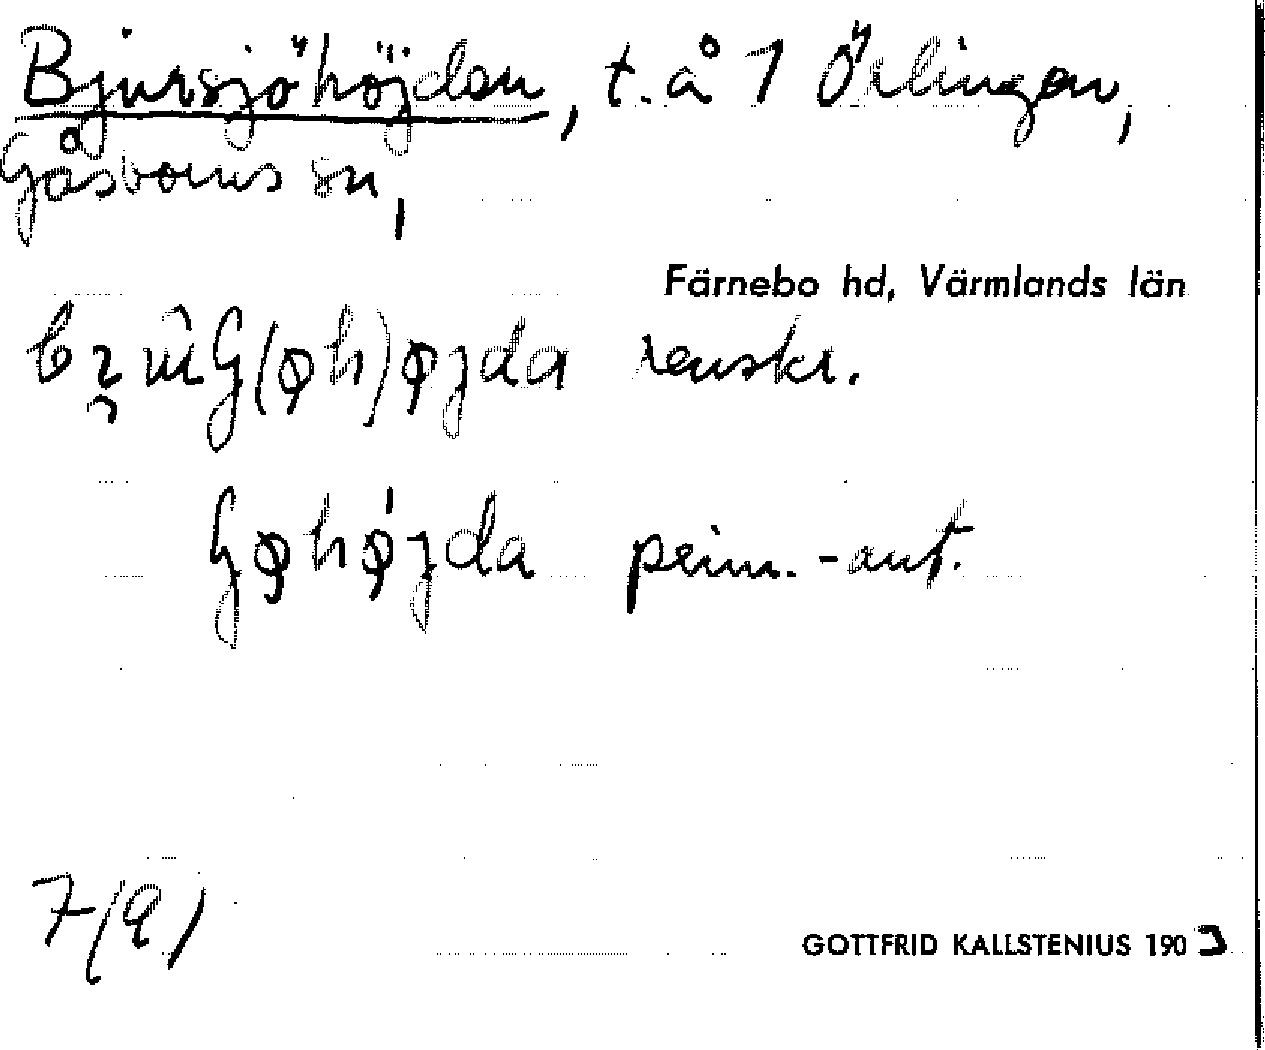 Bjursjöhöjden, t. å 1 Örlingen,
Gåsborns sn,
Färnebo hd, Värmlands län
renskr.
prim.-ant.
7(9)
GOTTFRID KALLSTENIUS 1903